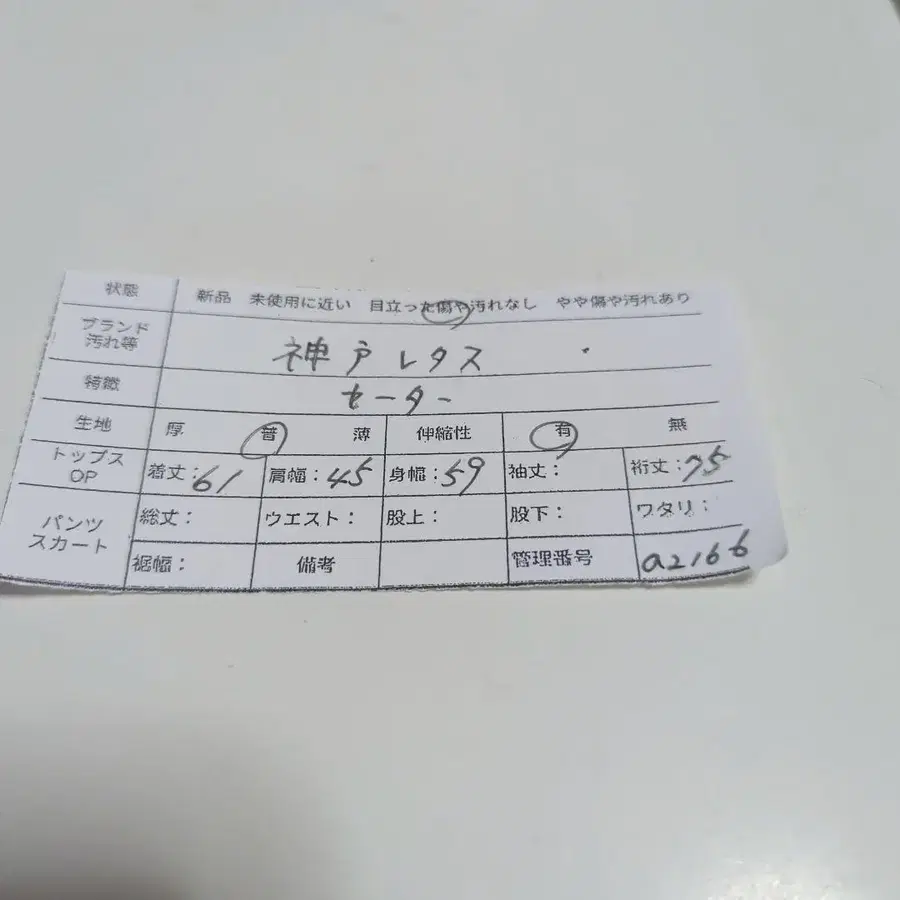 状態 新品 未使用に近い 目立った傷や汚れなし やや傷や汚れあり
ブランド
汚れ等 神戸レタス
特徴 セーター
生地 厚 普 薄 伸縮性 有 無
トップス
OP 着丈:61 肩幅:45 身幅:59 袖丈: 裄丈:75
パンツ
スカート 総丈: ウエスト: 股上: 股下: ワタリ:
裾幅: 備考 管理番号 a2166